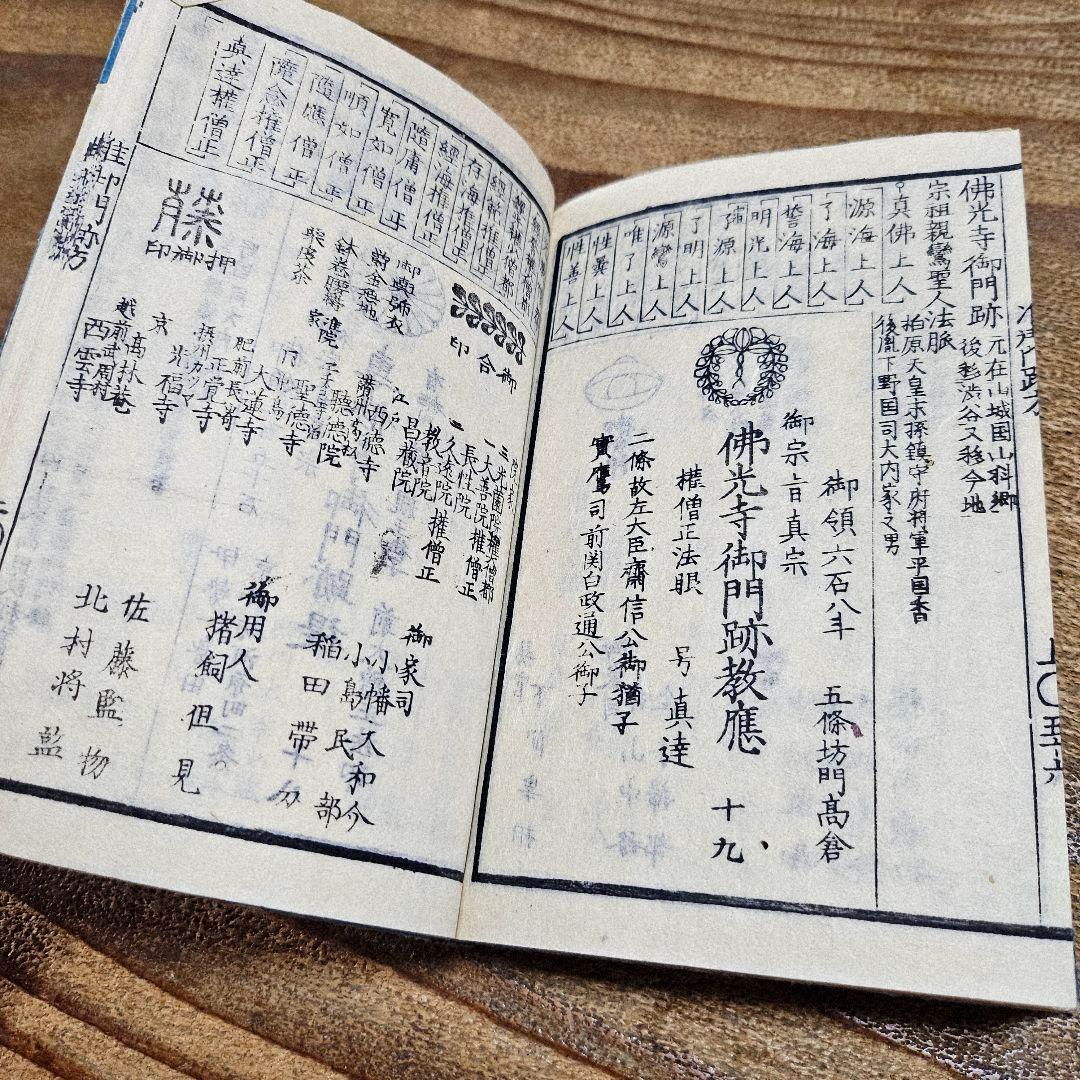 佛光寺御門跡
元在山城国山科郷
後移渋谷又移今地
宗祖親鸞聖人法脈
柏原天皇末孫鎮守府将軍平国香
後胤下野国司大内家之男
真佛上人
源海上人
了海上人
誓海上人
明光上人
了明上人
源鸞上人
唯了上人
性曇上人
性善上人
御領六石八斗
五條坊門高倉
御宗旨真宗
佛光寺御門跡教應
十九
権僧正法眼
号真達
二條故左大臣齊信公御猶子
實鷹司前関白政通公御子
経海権僧正
随庸僧正
寛如僧正
順如僧正
随應僧正
随念権僧正
真達権僧正
御合印
押御印
院家
大善院権僧正
長性院
久遠院権僧正
教音院
江戸
昌蔵院
西徳寺
聴徳院
聖徳寺
大蓮寺
肥前長嵜
正覚寺
摂州
光福寺
京
高林菴
越前武周村
西雲寺
御家司
小幡大和介
小島民部
稲田帯刀
御用人
猪飼但見
佐藤監物
北村将監